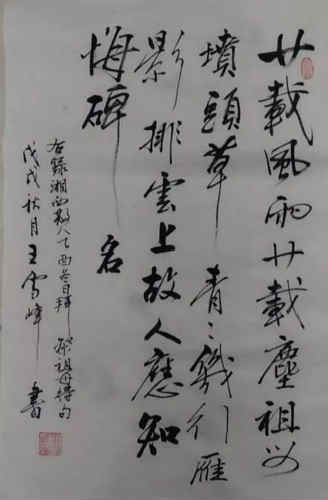 廿載風雨廿載塵祖母
墳頭草青〻幾行雁
影排雲上故人應知
悔碑名
右録湘西散人丁酉冬日拜祭祖母得句
戊戌秋月王雪峰書